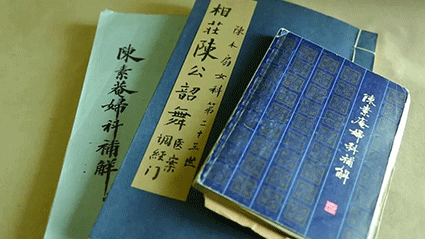 陳素菴婦科補解
陳木扇女科第二十三世
相莊陳公韶舞醫案
调经门
陳素菴婦科補解